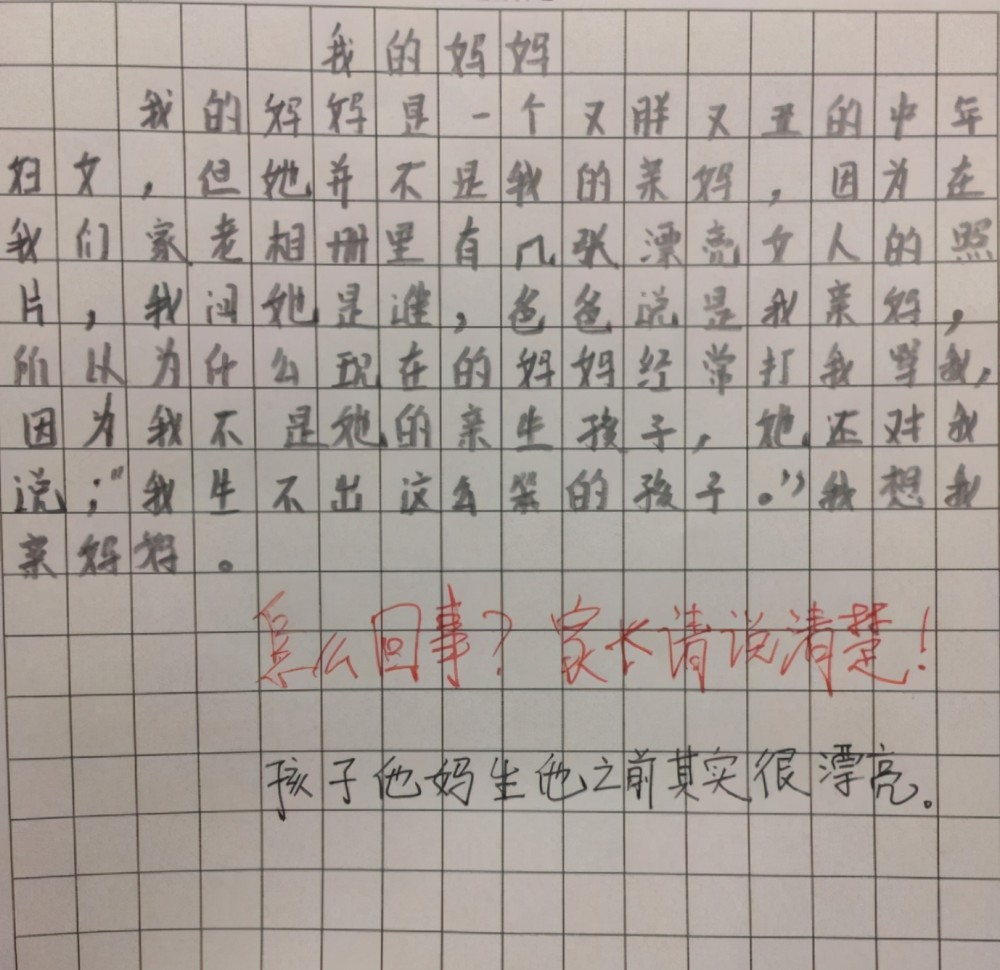 我的妈妈
我的妈妈是一个又胖又丑的中年
妇女，但她并不是我的亲妈，因为在
我们家老相册里有几张漂亮女人的照
片，我问她是谁，爸爸说是我亲妈，
所以为什么现在的妈妈经常打我骂我，
因为我不是她的亲生孩子，她还对我
说；“我生不出这么笨的孩子。”我想我
亲妈妈。
怎么回事？家长请说清楚！
孩子他妈生他之前其实很漂亮。